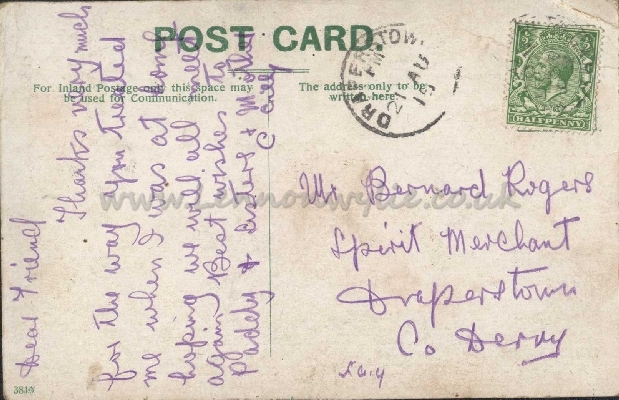 POST CARD.
For Inland Postage only this space may
be used for Communication.
The address only to be
written here.
DRAPERSTOWN
PM
21 AU
HALFPENNY
Dear Friend
Thanks very much
for the way you treated
me when I was at
hoping we will all meet
again Best wishes to
Paddy & sisters & Mother
C
Mr Bernard Rogers
Spirit Merchant
Draperstown
Co Derry
www.lennonwylie.co.uk